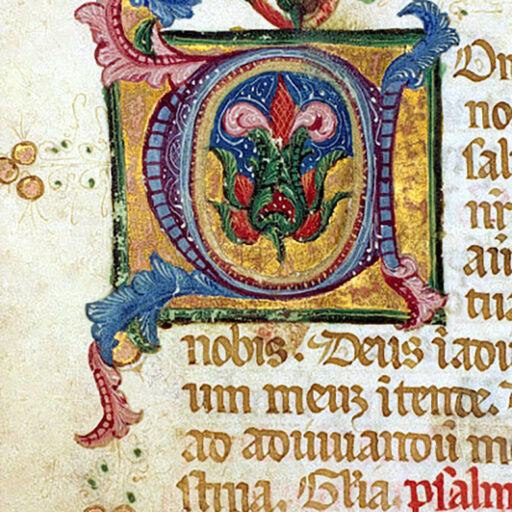 Dn
no
sal
nr̄
aū
tua
nobis. Deus ī adiu
um meuȝ ītende.
ad adiuuandū me
stina. Gl̄ia. psalm